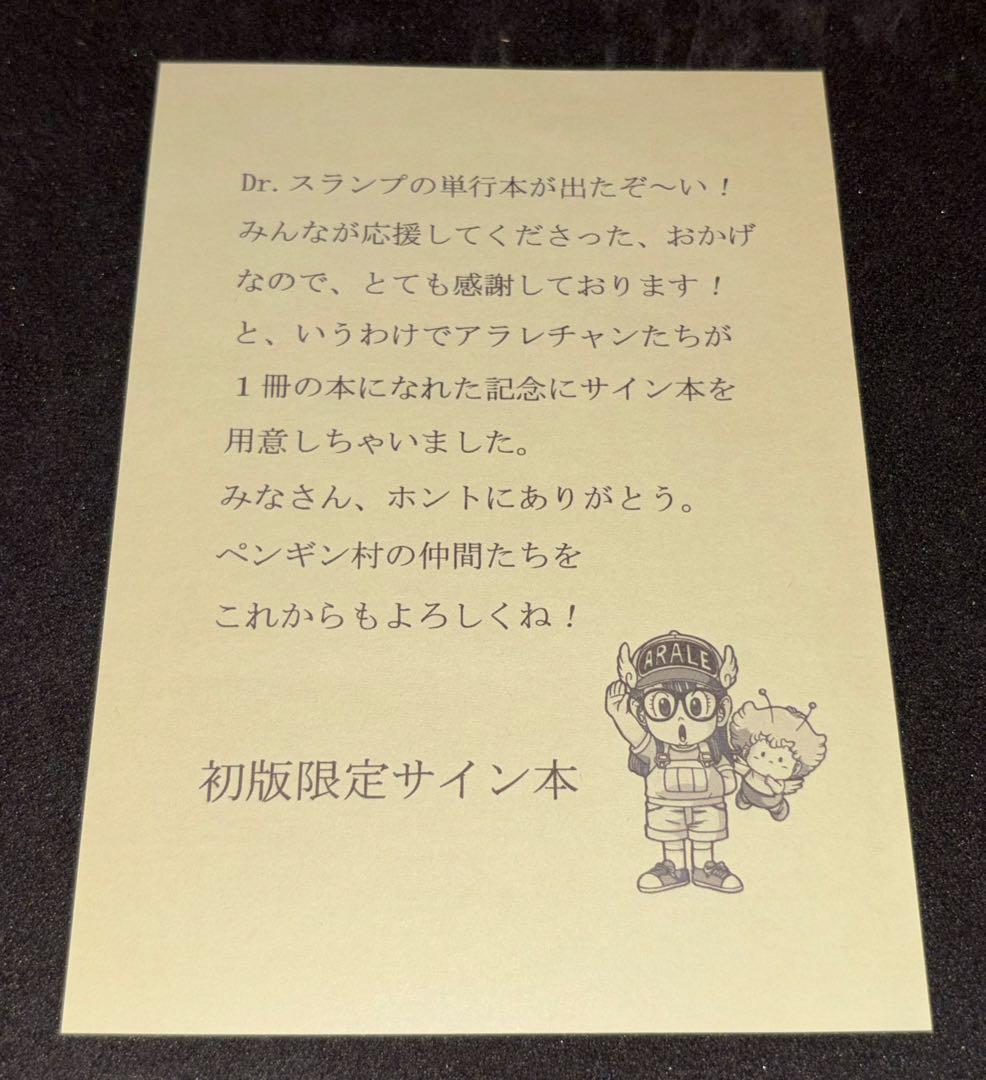 Dr.スランプの単行本が出たぞ〜い！
みんなが応援してくださった、おかげ
なので、とても感謝しております！
と、いうわけでアラレチャンたちが
１冊の本になれた記念にサイン本を
用意しちゃいました。
みなさん、ホントにありがとう。
ペンギン村の仲間たちを
これからもよろしくね！
ARALE
初版限定サイン本